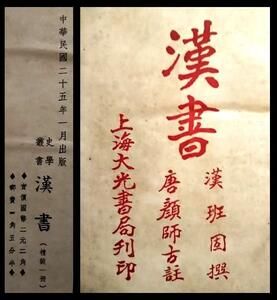 漢書
漢班固撰
唐顏師古註
上海大光書局刊印
中華民國二十五年一月出版
史學叢書
漢書
(精裝一冊)
實價國幣二元二角
郵費一角五分